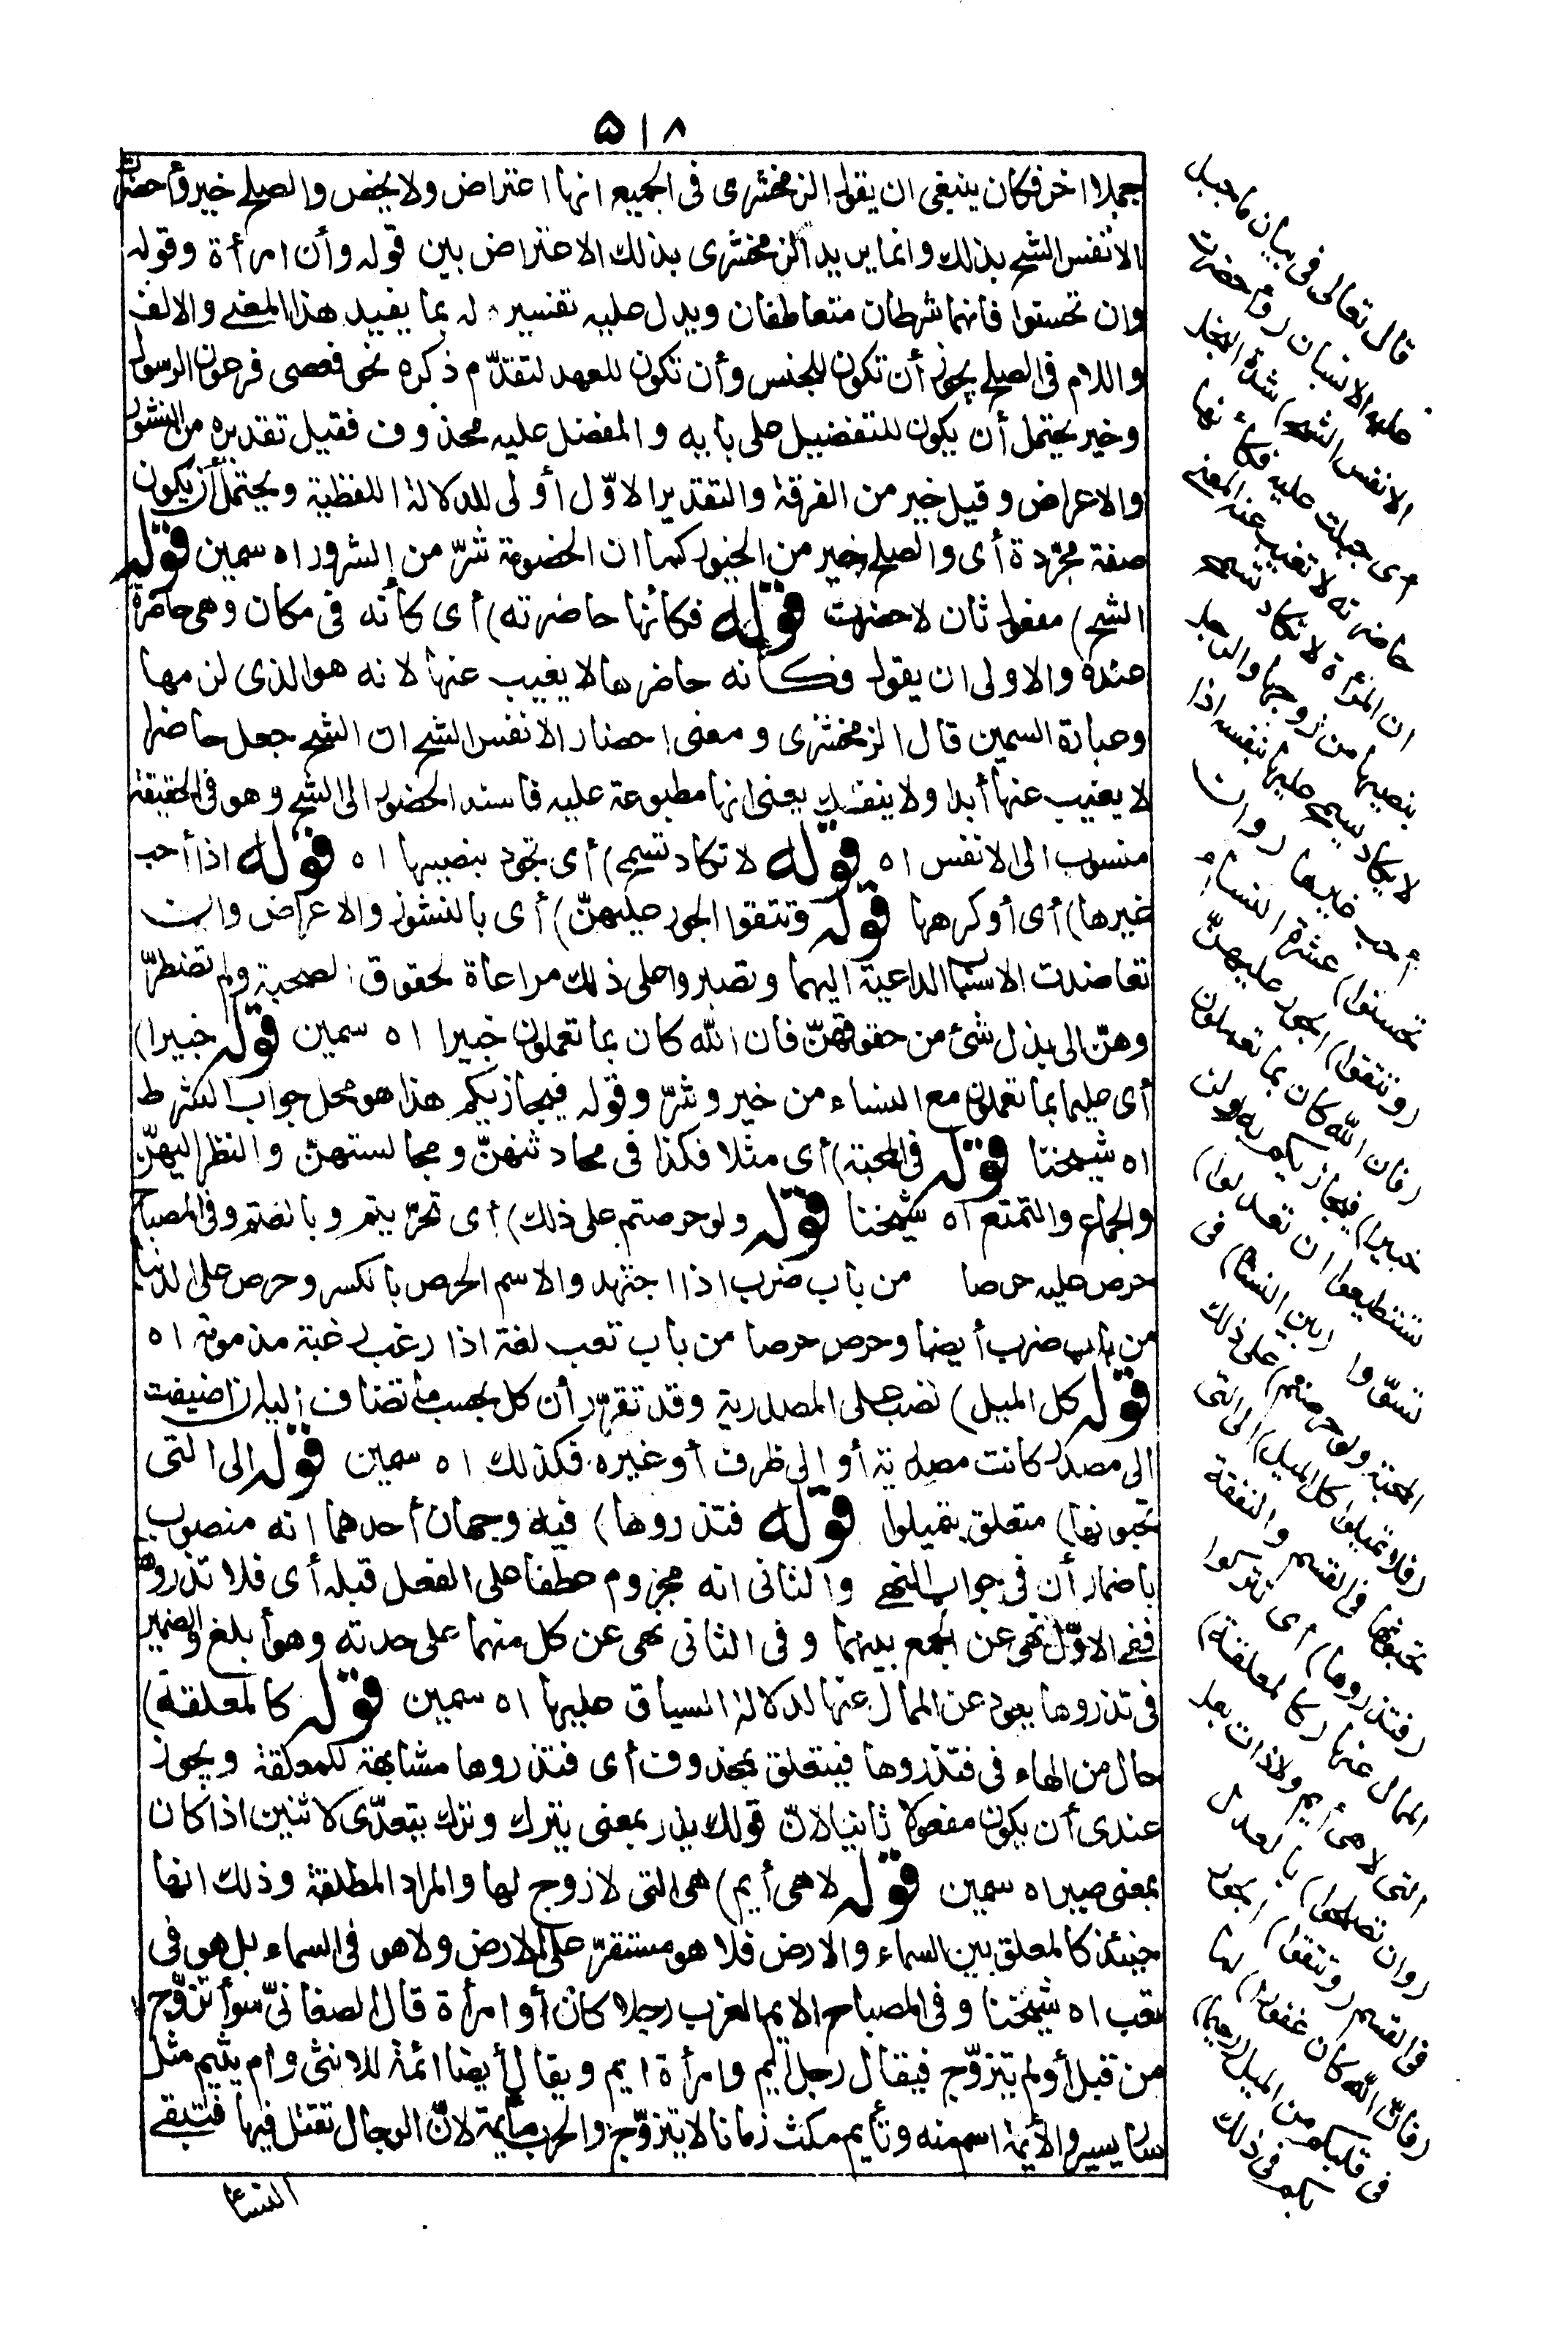 ٥١٨
جملا اخر فكان ينبغى ان يقول الزمخشرى فى الجميع انها اعتراض ولا يخص والصلح خير وأحضرت
الانفس الشح بذلك وانما يريد الزمخشرى بذلك الاعتراض بين قوله وأن امرأة وقوله
وان تحسنوا فانهما شرطان متعاطفان ويدل عليه تفسيره له بما يفيد هذا المعنى والالف
واللام فى الصلح يجوز أن تكون للجنس وأن تكون للعهد لتقدّم ذكره نحو فعصى فرعون الرسول
وخير يحتمل أن يكون للتفضيل على بابه والمفضل عليه محذوف فقيل تقديره من النشوز
والاعراض وقيل خير من الفرقة والتقدير الاوّل أولى للدلالة اللفظية ويحتمل أن يكون
صفة مجرّدة أى والصلح خير من الخيور كما ان الخصومة شرّ من الشرور اه سمين قوله
الشح) مفعول ثان لاحضرت قوله فكأنها حاضرته) أى كأنه فى مكان وهى حاضرة
عنده والاولى ان يقول فكأنه حاضرها لا يغيب عنها لانه هو الذى لزمها
وعبارة السمين قال الزمخشرى ومعنى احضار الانفس الشح ان الشح جعل حاضرا
لا يغيب عنها أبدا ولا ينفك يعنى انها مطبوعة عليه فاسند الحضور الى الشح وهو فى الحقيقة
منسوب الى الانفس اه قوله لا تكاد تسمح) أى تجود بنصيبها اه قوله اذا أحب
غيرها) أى أو كرهها قوله وتتقوا الجور عليهنّ) أى بالنشوز والاعراض وان
تعاضدت الاسباب الداعية اليهما وتصبروا على ذلك مراعاة لحقوق الصحبة ولم تضطرّ
وهنّ الى بذل شئ من حقوقهنّ فان الله كان بما تعملون خبيرا اه سمين قوله خبيرا)
أى عليما بما تعملون مع النساء من خير وشرّ وقوله فيجازيكم هذا هو محل جواب الشرط
اه شيخنا قوله فى المحبة) أى مثلا فكذا فى محادثتهنّ ومجالستهنّ والنظر اليهنّ
والجماع والتمتع اه شيخنا قوله ولو حرصتم على ذلك) أى تحرّيتم وبالغتم وفى المصباح
حرص عليه حرصا من باب ضرب اذا اجتهد والاسم الحرص بالكسر وحرص على الدنيا
من باب ضرب أيضا وحرص حرصا من باب تعب لغة اذا رغب رغبة مذمومة اه
قوله كل الميل) نصب على المصدرية وقد تقرّر أن كل بحسب ما تضاف اليه ان اضيفت
الى مصدر كانت مصدرية أو الى ظرف أو غيره فكذلك اه سمين قوله الى التى
تحبونها) متعلق بتميلوا قوله فتذروها) فيه وجهان أحدهما انه منصوب
باضمار أن فى جواب النهى والثانى انه مجزوم عطفا على الفعل قبله أى فلا تذروها
ففى الاوّل نهى عن الجمع بينهما وفى الثانى نهى عن كل منهما على حدته وهو أبلغ والضمير
فى تذروها يعود عن الممال عنها لدلالة السياق عليها اه سمين قوله كالمعلقة)
حال من الهاء فى فتذروها فيتعلق بمحذوف أى فتذروها مشابهة للمعلقة ويجوز
عندى أن يكون مفعولا ثانيا لانّ قولك يذر بمعنى يترك وترك يتعدّى لاثنين اذا كان
بمعنى صير اه سمين قوله لا هى أيم) هى التى لا زوج لها والمراد المطلقة وذلك انها
حينئذ كالمعلق بين السماء والارض فلا هو مستقرّ على الارض ولا هو فى السماء بل هو فى
تعب اه شيخنا وفى المصباح الايم العزب رجلا كان أو امرأة قال الصغانىّ سواء تزوّج
من قبل أو لم يتزوّج فيقال رجل أيم وامرأة ايم ويقال أيضا ائمة للانثى وام يئيم مثل
سار يسير والأيمة اسم منه وتأيم مكث زمانا لا يتزوّج والحرب مأيمة لانّ الرجال تقتل فيها فتبقى
النساء
قال تعالى فى بيان ما جبل
عليه الانسان (وأحضرت
الانفس الشح) شدة البخل
أى جبلت عليه فكأنها
حاضرته لا تغيب عنه المعنى
ان المرأة لا تكاد تسمح
بنصيبها من زوجها والرجل
لا يكاد يسمح عليها بنفسه اذا
أحب غيرها (وان
تحسنوا) عشرة النساء
(وتتقوا) الجور عليهنّ
(فان الله كان بما تعملون
خبيرا) فيجازيكم به (ولن
تستطيعوا ان تعدلوا)
تسوّوا (بين النساء) فى
المحبة (ولو حرصتم) على ذلك
(فلا تميلوا كل الميل) الى التى
تحبونها فى القسم والنفقة
(فتذروها) أى تتركوا
الممال عنها (كالمعلقة)
التى لا هى أيم ولا ذات بعل
(وان تصلحوا) بالعدل
فى القسم (وتتقوا) الجور
(فانّ الله كان غفورا) لما
فى قلبكم من الميل (رحيما)
بكم فى ذلك